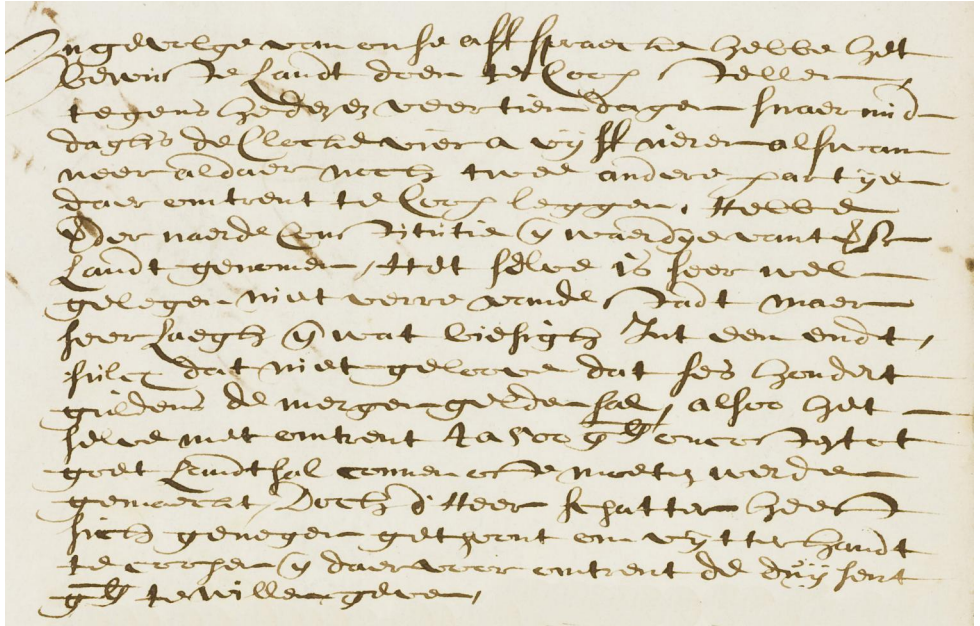 Ingevolge van onse affspraecke hebbe het
bewuste Landt doen te Coop stellen,
tegens heden veertien dagen snaermid
daghs de Clocke vier a vyff uren alswan
neer aldaer noch twee andere partyen
daer omtrent te Coop leggen, Hebbe
naerde Constitutie waerdye vant
Landt genomen, Het selve is seer wel
gelegen niet verre vande Stadt maer
seer Laegh wat biesigh Int een endt,
sulcx dat niet geloove dat ses hondert
guldens de mergen gelden sal, alsoo het
selve met omtrent 4 a 500 oncosten tot
goet Landt sal connen ofte moeten werden
gemaeckt, Doch d'Heer schatter heeft
sich genegen gethoont om uytter handt
te coopen daer voor omtrent de
te willen geven,